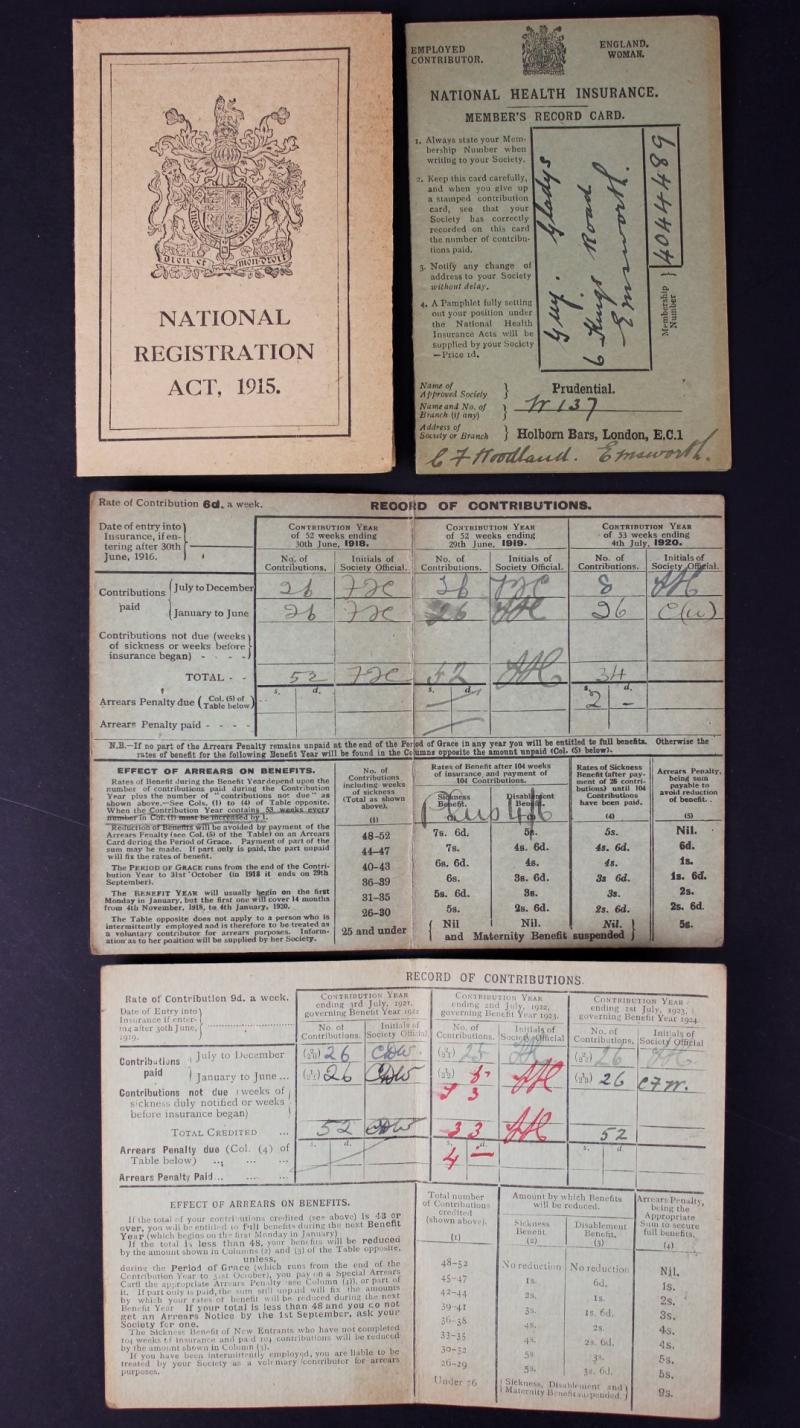 DIEU ET MON DROIT
NATIONAL
REGISTRATION
ACT, 1915.
EMPLOYED
CONTRIBUTOR.
ENGLAND.
WOMAN.
NATIONAL HEALTH INSURANCE.
MEMBER'S RECORD CARD.
1. Always state your Mem-
bership Number when
writing to your Society.
2. Keep this card carefully,
and when you give up
a stamped contribution
card, see that your
Society has correctly
recorded on this card
the number of contribu-
tions paid.
3. Notify any change of
address to your Society
without delay.
4. A Pamphlet fully setting
out your position under
the National Health
Insurance Acts will be
supplied by your Society
—Price 1d.
Guy. Gladys
6 Kings Road
Emsworth.
Membership
Number
4044489
Name of
Approved Society
Prudential.
Name and No. of
Branch (if any)
W 137
Address of
Society or Branch
Holborn Bars, London, E.C.1
C F Woodland. Emsworth.
Rate of Contribution 6d. a week.
RECORD OF CONTRIBUTIONS.
Date of entry into
Insurance, if en-
tering after 30th
June, 1916.
CONTRIBUTION YEAR
of 52 weeks ending
30th June, 1918.
CONTRIBUTION YEAR
of 52 weeks ending
29th June, 1919.
CONTRIBUTION YEAR
of 53 weeks ending
4th July, 1920.
No. of
Contributions.
Initials of
Society Official.
No. of
Contributions.
Initials of
Society Official.
No. of
Contributions.
Initials of
Society Official.
Contributions
paid
July to December
26 26 8
January to June
26 26 26
Contributions not due (weeks
of sickness or weeks before
insurance began) - - - -
TOTAL - -
52 52 34
Arrears Penalty due (Col. (5) of
Table below)
s. d. s. d. s. d.
2 -
Arrears Penalty paid - - - -
N.B.—If no part of the Arrears Penalty remains unpaid at the end of the Period of Grace in any year you will be entitled to full benefits. Otherwise the
rates of benefit for the following Benefit Year will be found in the Columns opposite the amount unpaid (Col. (5) below).
EFFECT OF ARREARS ON BENEFITS.
Rates of Benefit during the Benefit Year depend upon the
number of contributions paid during the Contribution
Year plus the number of "contributions not due" as
shown above.—See Cols. (1) to (4) of Table opposite.
When the Contribution Year contains 53 weeks every
number in Col. (1) must be increased by 1.
Reduction of Benefits will be avoided by payment of the
Arrears Penalty (see Col. (5) of the Table) on an Arrears
Card during the Period of Grace. Payment of part of the
sum may be made. If part only is paid, the part unpaid
will fix the rates of benefit.
The PERIOD OF GRACE runs from the end of the Contri-
bution Year to 31st October (in 1918 it ends on 29th
September).
The BENEFIT YEAR will usually begin on the first
Monday in January, but the first one will cover 14 months
from 4th November, 1918, to 4th January, 1920.
The Table opposite does not apply to a person who is
intermittently employed and is therefore to be treated as
a voluntary contributor for arrears purposes. Inform-
ation as to her position will be supplied by her Society.
No. of
Contributions
including weeks
of sickness
(Total as shown
above).
(1)
Rates of Benefit after 104 weeks
of insurance and payment of
104 Contributions.
Sickness
Benefit.
Disablement
Benefit.
Rates of Sickness
Benefit (after pay-
ment of 26 contri-
butions) until 104
Contributions
have been paid.
(4)
Arrears Penalty,
being sum
payable to
avoid reduction
of benefit.
(5)
48-52 7s. 6d. 5s. 5s. Nil.
44-47 7s. 4s. 6d. 4s. 6d. 6d.
40-43 6s. 6d. 4s. 4s. 1s.
36-39 6s. 3s. 6d. 3s 6d. 1s. 6d.
31-35 5s. 6d. 3s. 3s. 2s.
26-30 5s. 2s. 6d. 2s. 6d. 2s. 6d.
25 and under Nil Nil. Nil. 5s.
and Maternity Benefit suspended
RECORD OF CONTRIBUTIONS.
Rate of Contribution 9d. a week.
Date of Entry into
Insurance if enter-
ing after 30th June,
1919.
CONTRIBUTION YEAR
ending 3rd July, 1921,
governing Benefit Year 1922
CONTRIBUTION YEAR
ending 2nd July, 1922,
governing Benefit Year 1923.
CONTRIBUTION YEAR
ending 1st July, 1923,
governing Benefit Year 1924.
No. of
Contributions.
Initials of
Society Official
No. of
Contributions.
Initials of
Society Official
No. of
Contributions.
Initials of
Society Official
Contributions
paid
July to December
26 CDW. 25 26
January to June ...
26 CDW 8 26 CFW.
Contributions not due (weeks of
sickness duly notified or weeks
before insurance began)
TOTAL CREDITED ...
52 CDW 33 52
Arrears Penalty due (Col. (4) of
Table below) ... ... ...
s. d. s. d. s. d.
4 -
Arrears Penalty Paid ... ... ...
EFFECT OF ARREARS ON BENEFITS.
If the total of your contributions credited (see above) is 48 or
over, you will be entitled to full benefits during the next Benefit
Year (which begins on the first Monday in January)
If the total is less than 48, your benefits will be reduced
by the amount shown in Columns (2) and (3) of the Table opposite,
unless,
during the Period of Grace (which runs from the end of the
Contribution Year to 31st October), you pay on a Special Arrears
Card the appropriate Arrears Penalty (see Column (4)), or part of
it. If part only is paid, the sum still unpaid will fix the amounts
by which your rates of benefit will be reduced during the next
Benefit Year. If your total is less than 48 and you do not
get an Arrears Notice by the 1st September, ask your
Society for one.
The Sickness Benefit of New Entrants who have not completed
104 weeks of insurance and paid 104 contributions will be reduced
by the amount shown in Column (3).
If you have been intermittently employed, you are liable to be
treated by your Society as a voluntary contributor for arrears
purposes.
Total number
of Contributions
credited
(shown above).
(1)
Amount by which Benefits
will be reduced.
Sickness
Benefit.
(2)
Disablement
Benefit.
(3)
Arrears Penalty,
being the
Appropriate
Sum to secure
full benefits.
(4)
48-52 No reduction No reduction Nil.
45-47 1s. 6d. 1s.
42-44 2s. 1s. 2s.
39-41 3s. 1s. 6d. 3s.
36-38 4s. 2s. 4s.
33-35 4s. 2s. 6d. 4s.
30-32 5s 3s. 5s.
26-29 5s. 3s. 6d. 5s.
Under 26 Sickness, Disablement and
Maternity Benefit suspended. 9s.